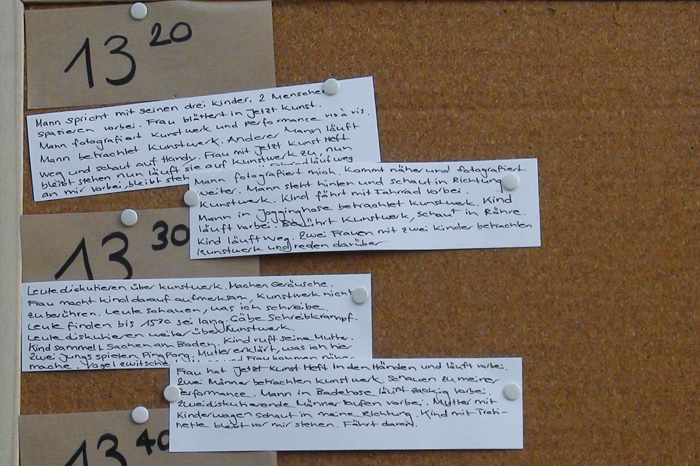 13 20
Mann spricht mit seinen drei Kinder. 2 Menschen
spazieren vorbei. Frau blättert in Jetzt Kunst.
Mann fotografiert Kunstwerk und Performance vis à vis.
Mann betrachtet Kunstwerk. Anderer Mann läuft
weg und schaut auf Handy. Frau mit Jetzt Kunst Heft
bleibt stehen nun läuft sie auf Kunstwerk zu, nun
an mir vorbei, bleibt steh läuft weg
Mann fotografiert mich. Kommt näher und fotografiert
weiter. Mann steht hinten und schaut in Richtung
Kunstwerk. Kind fährt mit Fahrrad vorbei.
Mann in Jogginghose betrachtet Kunstwerk. Kind
läuft vorbei. Berührt Kunstwerk, schaut in Röhre.
Kind läuft weg. Zwei Frauen mit zwei Kinder betrachten
Kunstwerk und reden darüber
13 30
Leute diskutieren über Kunstwerk. Machen Geräusche.
Frau macht Kind darauf aufmerksam, Kunstwerk nicht
zu berühren. Leute schauen, was ich schreibe.
Leute finden bis 1530 sei lang. Gäbe Schreibkrampf.
Leute diskutieren weiter über Kunstwerk.
Kind sammelt Sachen am Boden. Kind ruft seine Mutter.
Zwei Jungs spielen PingPong. Mutter erklärt, was ich hier
mache. Vogel zwitsche Frau kommen näher
Frau hat Jetzt Kunst Heft in den Händen und läuft vorbei.
Zwei Männer betrachten Kunstwerk, schauen zu meiner
Performance. Mann in Badehose läuft vorbei.
Zwei diskutierende Männer laufen vorbei. Mutter mit
Kinderwagen schaut in meine Richtung. Kind mit Troti-
nette bleibt vor mir stehen. Fährt davon.
13 40